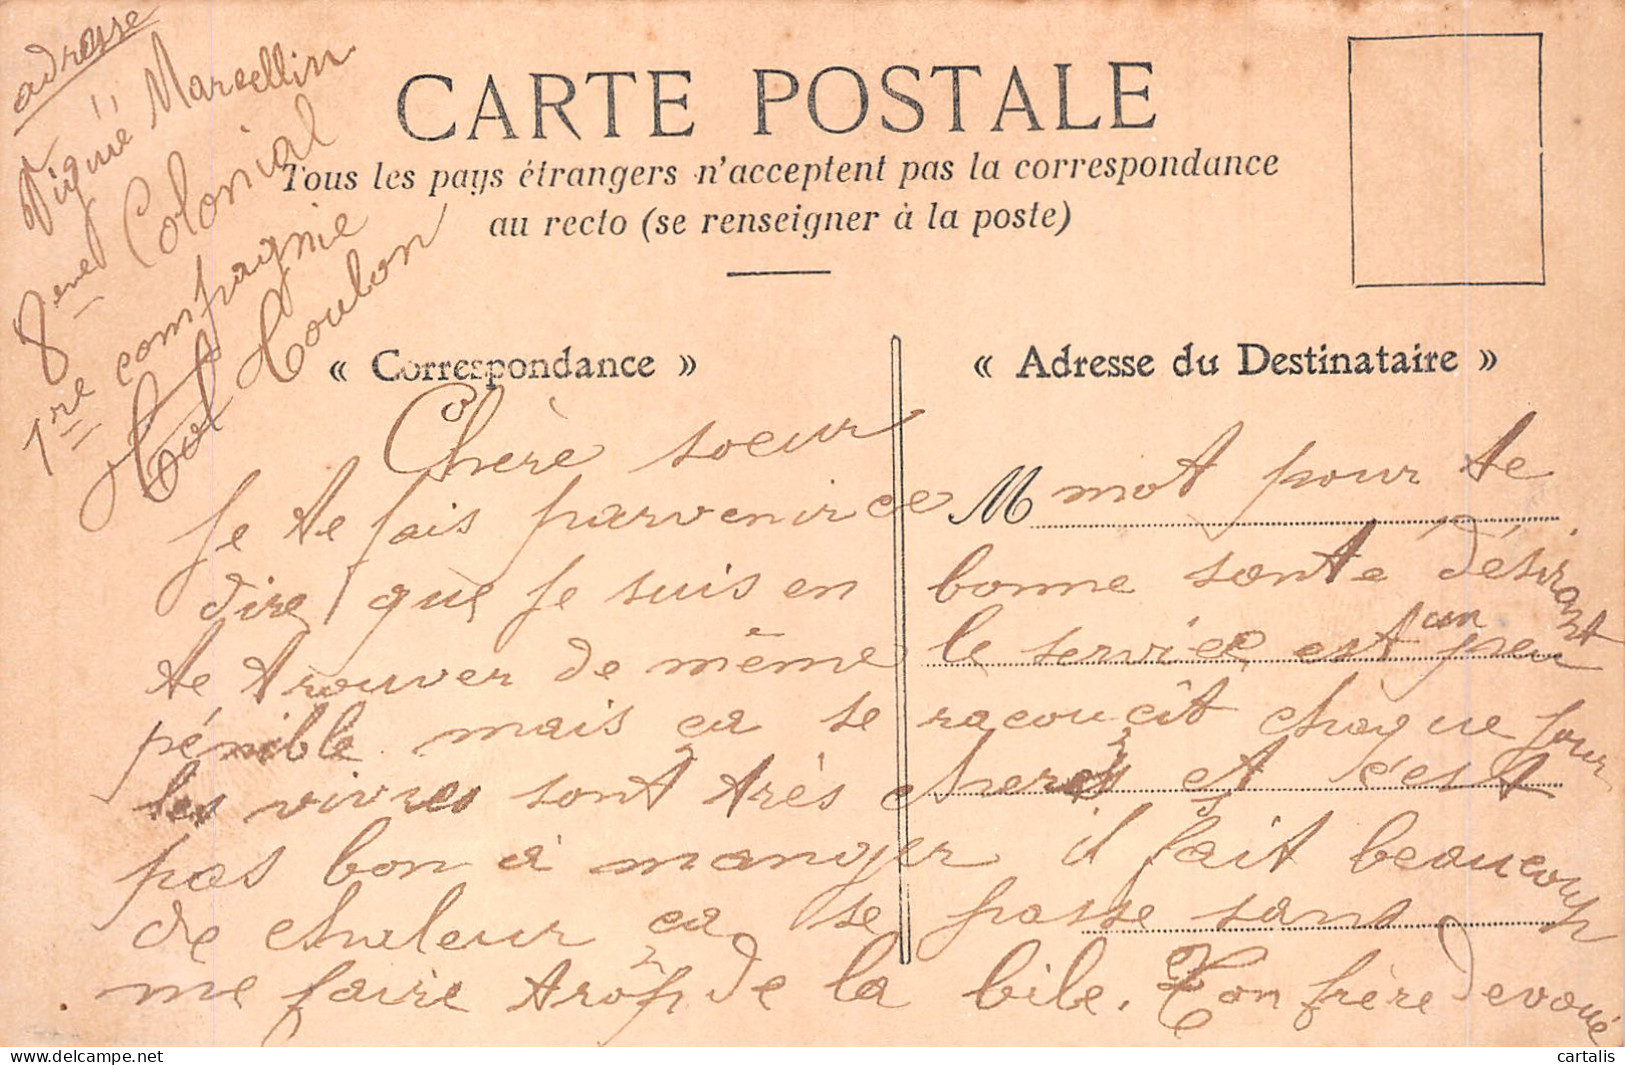 adresse
Vigné Marcellin
8ème Colonial
1re compagnie
Toulon
CARTE POSTALE
Tous les pays étrangers n'acceptent pas la correspondance
au recto (se renseigner à la poste)
« Correspondance »
« Adresse du Destinataire »
Chère soeur
Je te fais parvenir ce M mot pour te
dire que je suis en bonne sante désirant
te trouver de même le service est un peu
pénible mais ça se racoucit chaque jour
les vivres sont très cheres et c'est
pas bon a manger il fait beaucoup
de chaleur ça se passe sans
me faire trop de la bile. Ton frère devoué
cartalis